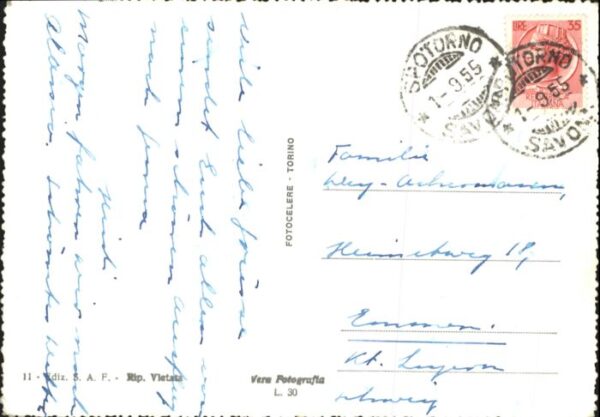 Viele liebe Grüsse
sendet Euch allen von
einem schönen Ausflug
nach
Heidi
Morgen fahren wir nach
Alassio.
FOTOCELERE - TORINO
LIRE 35
SPOTORNO
1-9.55
SAVONA
SPOTORNO
1-9.55
SAVONA
Familie
Wey-
Heimetweg 18,
Emmen
Kt. Luzern
11 - Ediz. S. A. F. - Rip. Vietata
Vera Fotografia
L. 30